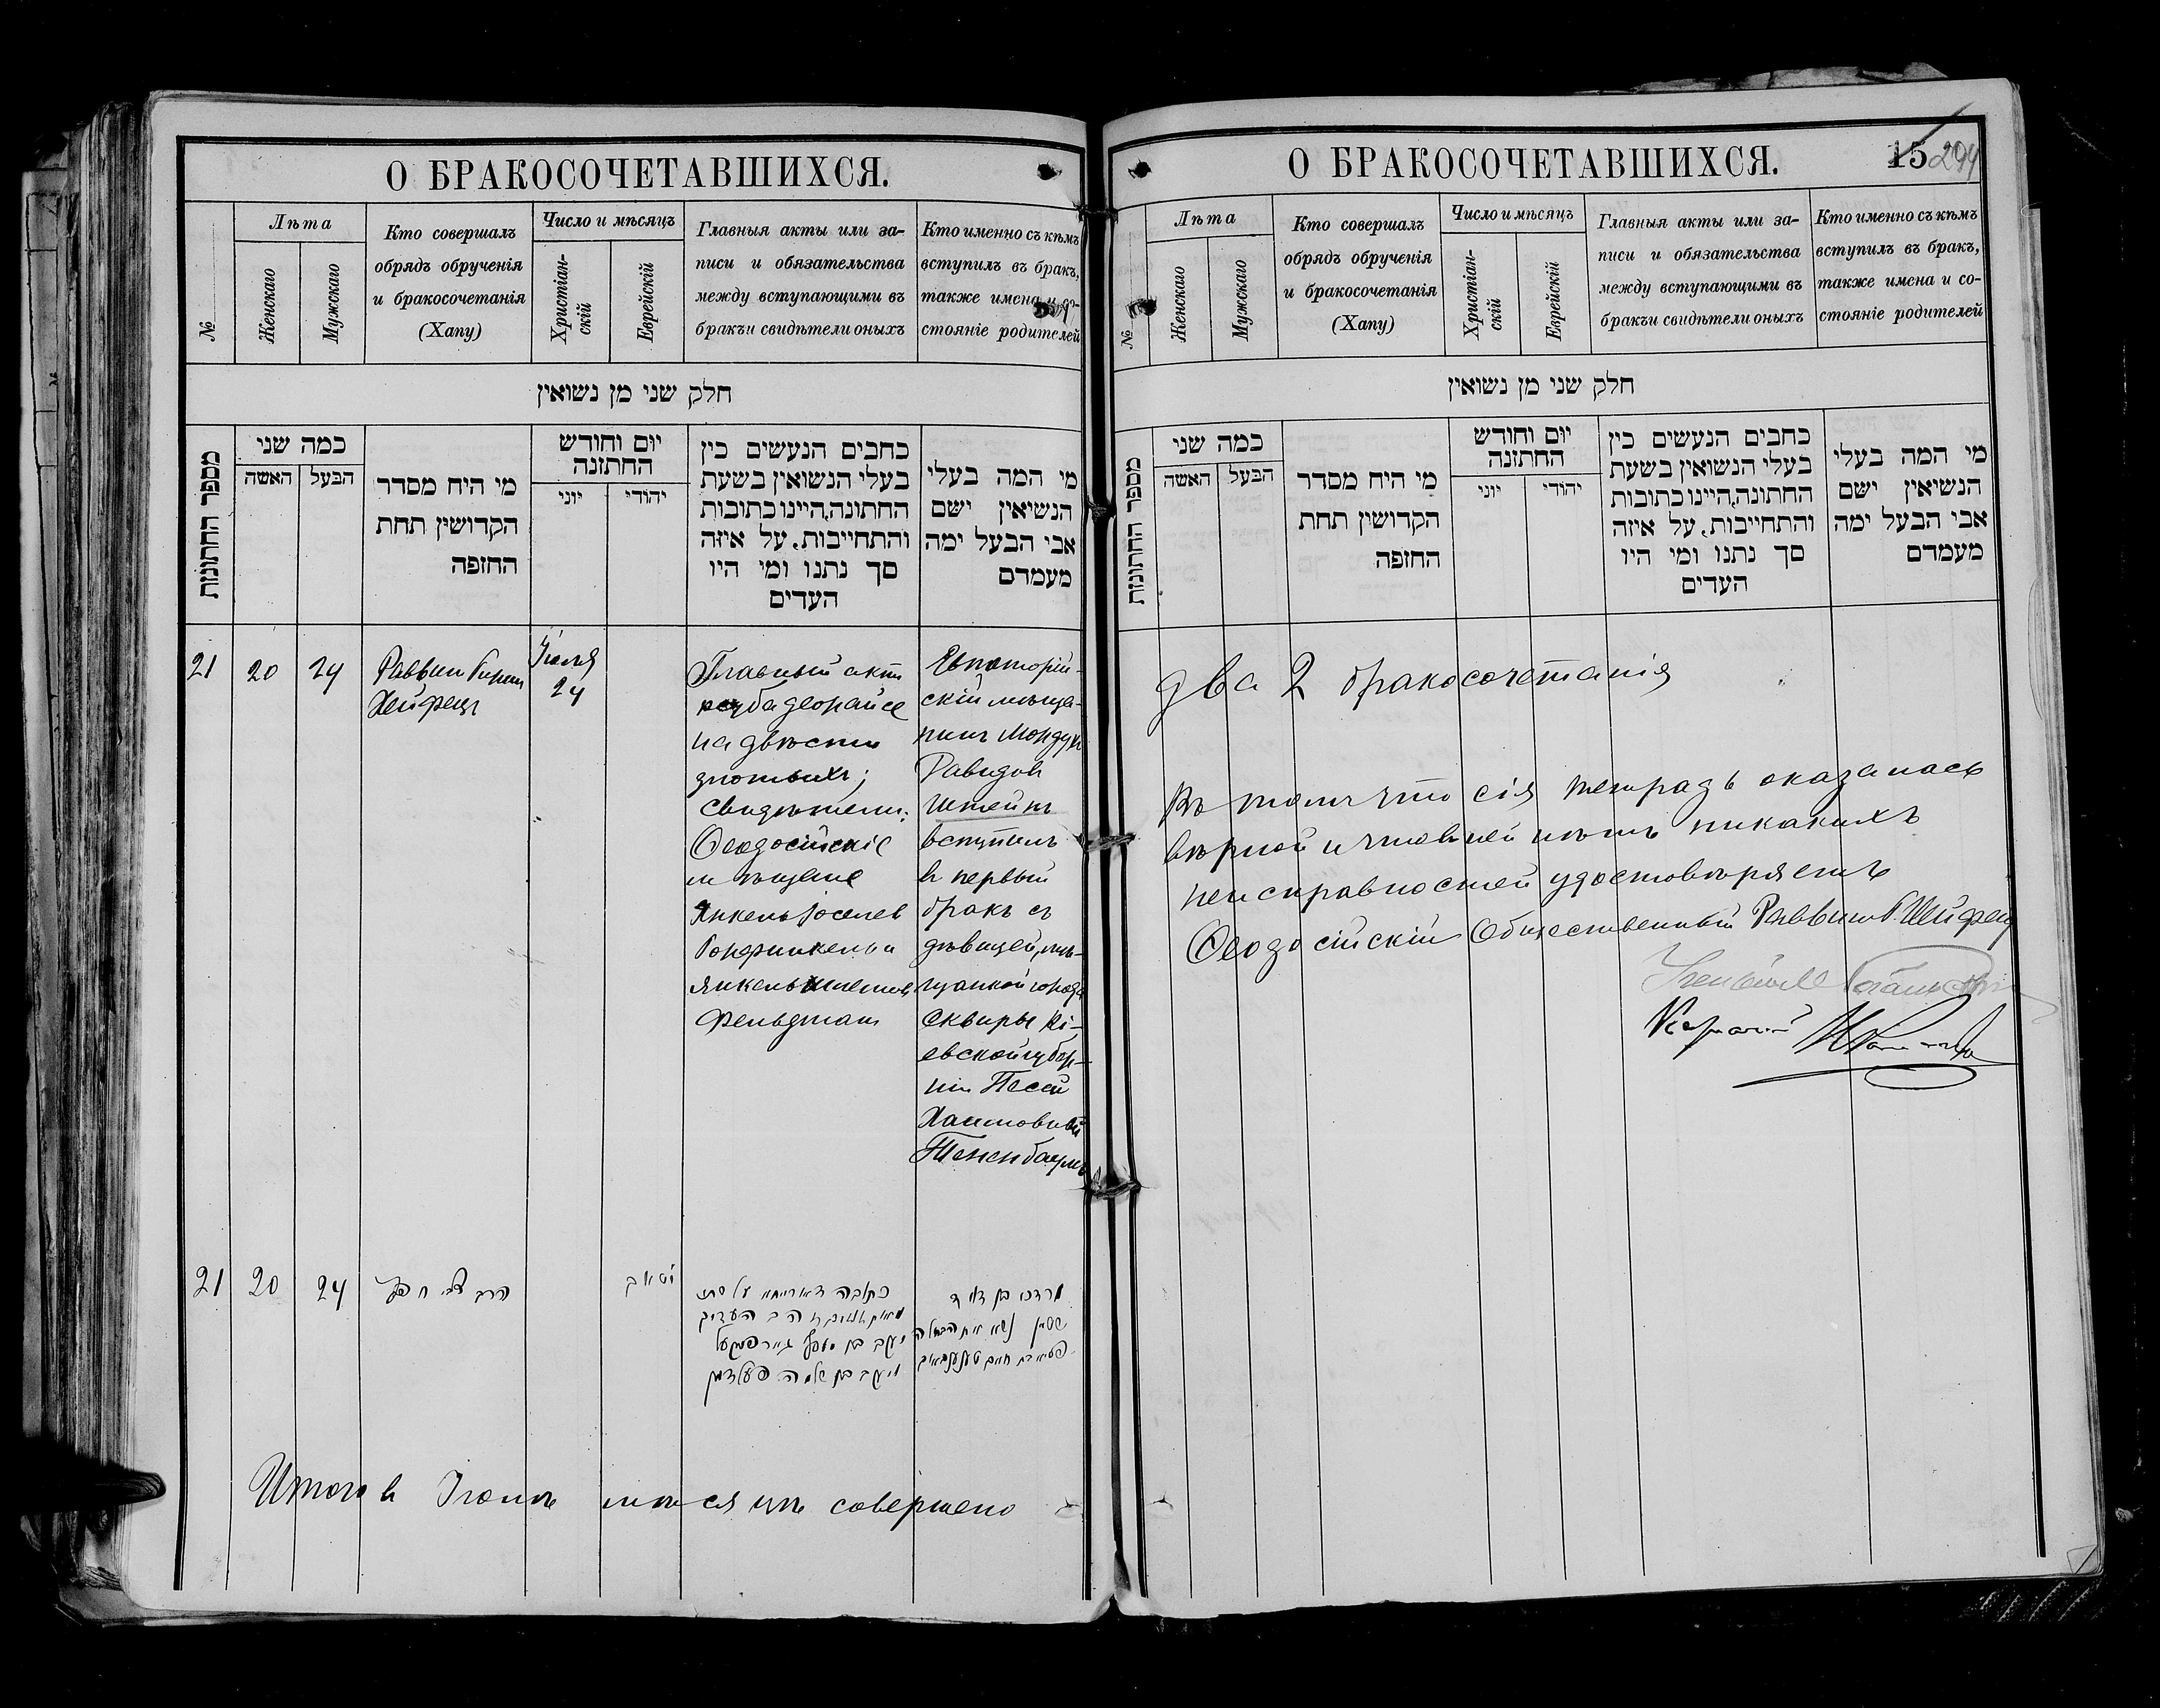 О БРАКОСОЧЕТАВШИХСЯ.
№
Лѣта
Женскаго
Мужскаго
Кто совершалъ
обрядъ обрученія
и бракосочетанія
(Хапу)
Число и мѣсяцъ
Христіан-
скій
Еврейскій
Главныя акты или за-
писи и обязательства
между вступающими въ
бракъ и свидѣтели оныхъ
Кто именно съ кѣмъ
вступилъ въ бракъ,
также имена и со-
стояніе родителей
חלק שני מן נשואין
מספר החתונות
כמה שני
האשה
הבעל
מי היח מסדר
הקדושין תחת
החזפה
יום וחודש
החתונה
יוני
יהודי
כחבים הנעשים כין
בעלי הנשואין בשעת
החתונה,היינו כתובות
והתחייבות, על איזה
סך נתנו ומי היו
העדים
מי המה בעלי
הנשיאין ישם
אבי הבעל ימה
מעמדם
21
20
24
Раввинъ Гирш
Хейфецъ
24
Главный актъ
на двѣсти
злотыхъ;
Свидѣтели:
Ѳеодосійскіе
мѣщане
Янкель Іоселев
Янкель Шлемов
Фельдман
Евпаторій-
скій мѣща-
нинъ Мордух
Давидов
Штейнъ
вступилъ
въ первый
бракъ съ
дѣвицей, мѣ-
щанкой города
Сквиры Кі-
евской губер-
ніи Песей
Хаимовной
Тененбаумъ
21
20
24
מרדכי בן דוד
שטיין נשא את הבתולה
יעקב בן
ויעקב בן שלמה פעלדמן
Итого въ Іюлѣ мѣсяцѣ совершено
О БРАКОСОЧЕТАВШИХСЯ.
15 294
№
Лѣта
Женскаго
Мужскаго
Кто совершалъ
обрядъ обрученія
и бракосочетанія
(Хапу)
Число и мѣсяцъ
Христіан-
скій
Еврейскій
Главныя акты или за-
писи и обязательства
между вступающими въ
бракъ и свидѣтели оныхъ
Кто именно съ кѣмъ
вступилъ въ бракъ,
также имена и со-
стояніе родителей
חלק שני מן נשואין
מספר החתונות
כמה שני
האשה
הבעל
מי היח מסדר
הקדושין תחת
החזפה
יום וחודש
החתונה
יוני
יהודי
כחבים הנעשים כין
בעלי הנשואין בשעת
החתונה,היינו כתובות
והתחייבות, על איזה
סך נתנו ומי היו
העדים
מי המה בעלי
הנשיאין ישם
אבי הבעל ימה
מעמדם
два 2 бракосочетанія
Въ томъ что сія тетрадь оказалась
вѣрной и что въ ней нѣтъ никакихъ
неисправностей удостовѣряетъ
Ѳеодосійскій Общественный Раввинъ Г. Хейфец